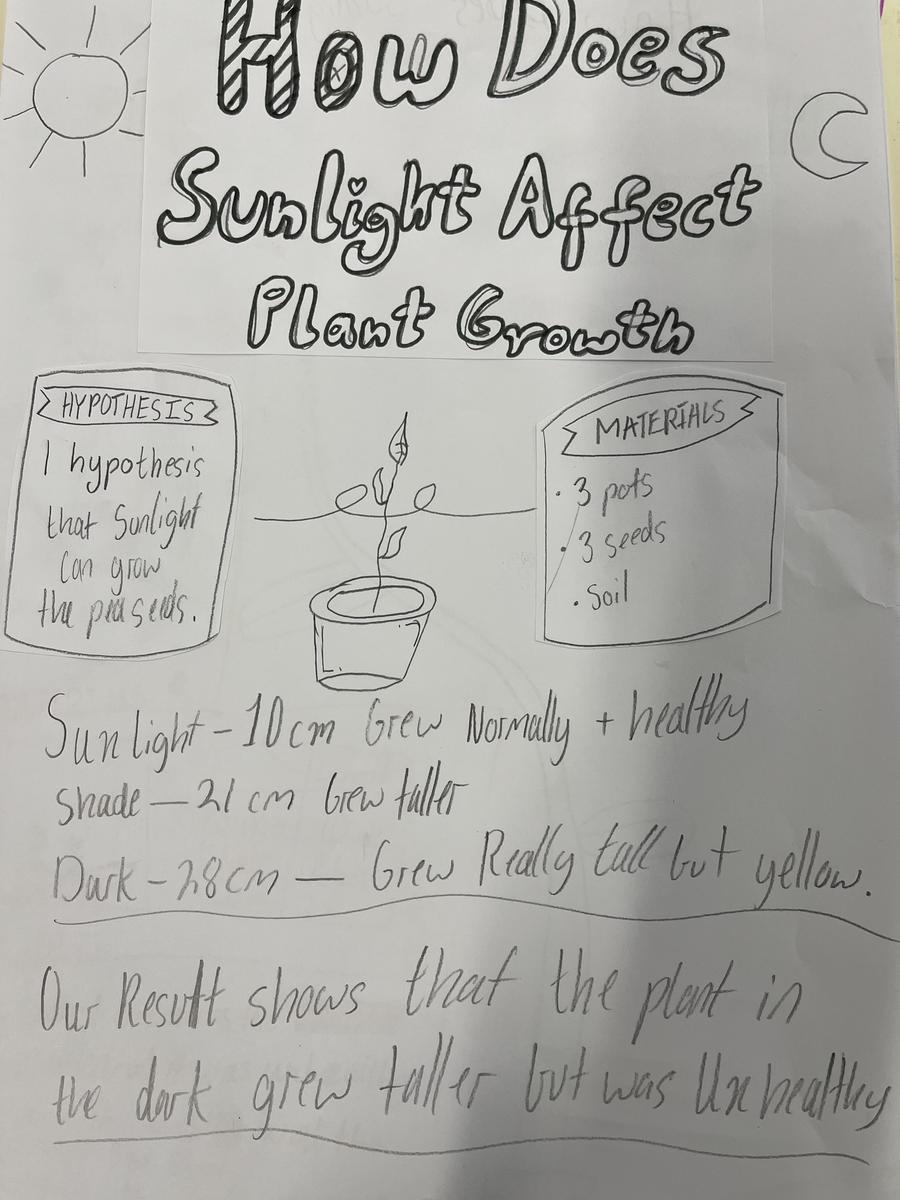 How Does
Sunlight Affect
Plant Growth
HYPOTHESIS
I hypothesis
that Sunlight
Can grow
the pea seeds.
MATERIALS
· 3 pots
· 3 seeds
· Soil
Sunlight - 10cm Grew Normally + healthy
Shade - 21 cm Grew taller
Dark - 28cm - Grew Really tall but yellow.
Our Result shows that the plant in
the dark grew taller but was Unhealthy